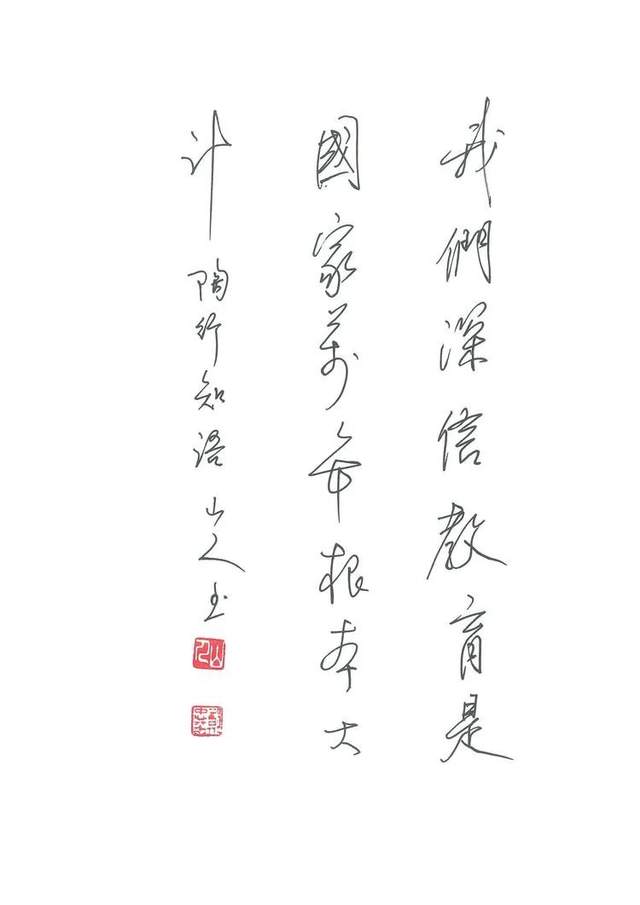 我們深信教育是
國家萬年根本大
計 陶行知語 山人書